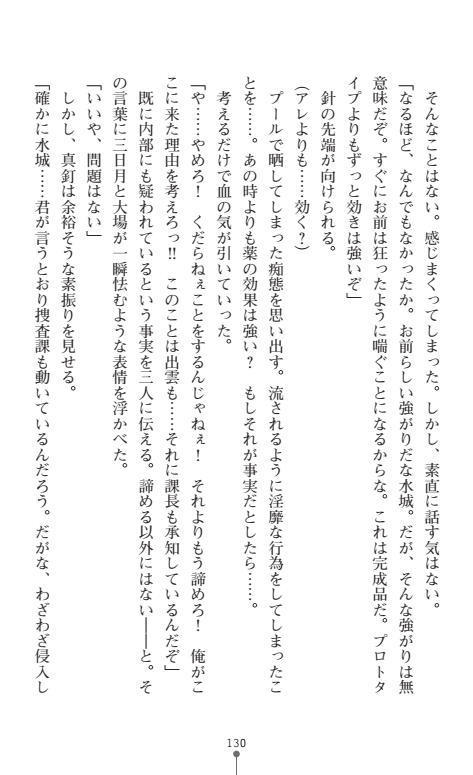 そんなことはない。感じまくってしまった。しかし、素直に話す気はない。
「なるほど、なんでもなかったか。お前らしい強がりだな水城。だが、そんな強がりは無
意味だぞ。すぐにお前は狂ったように喘ぐことになるからな。これは完成品だ。プロトタ
イプよりもずっと効きは強いぞ」
針の先端が向けられる。
(アレよりも……効く?)
プールで晒してしまった痴態を思い出す。流されるように淫靡な行為をしてしまったこ
とを……。あの時よりも薬の効果は強い? もしそれが事実だとしたら……。
考えるだけで血の気が引いていった。
「や……やめろ! くだらねぇことをするんじゃねぇ! それよりもう諦めろ! 俺がこ
こに来た理由を考えろっ!! このことは出雲も……それに課長も承知しているんだぞ」
既に内部にも疑われているという事実を三人に伝える。諦める以外にはない――と。そ
の言葉に三日月と大場が一瞬怯むような表情を浮かべた。
「いいや、問題はない」
しかし、真釘は余裕そうな素振りを見せる。
「確かに水城……君が言うとおり捜査課も動いているんだろう。だがな、わざわざ侵入し
130